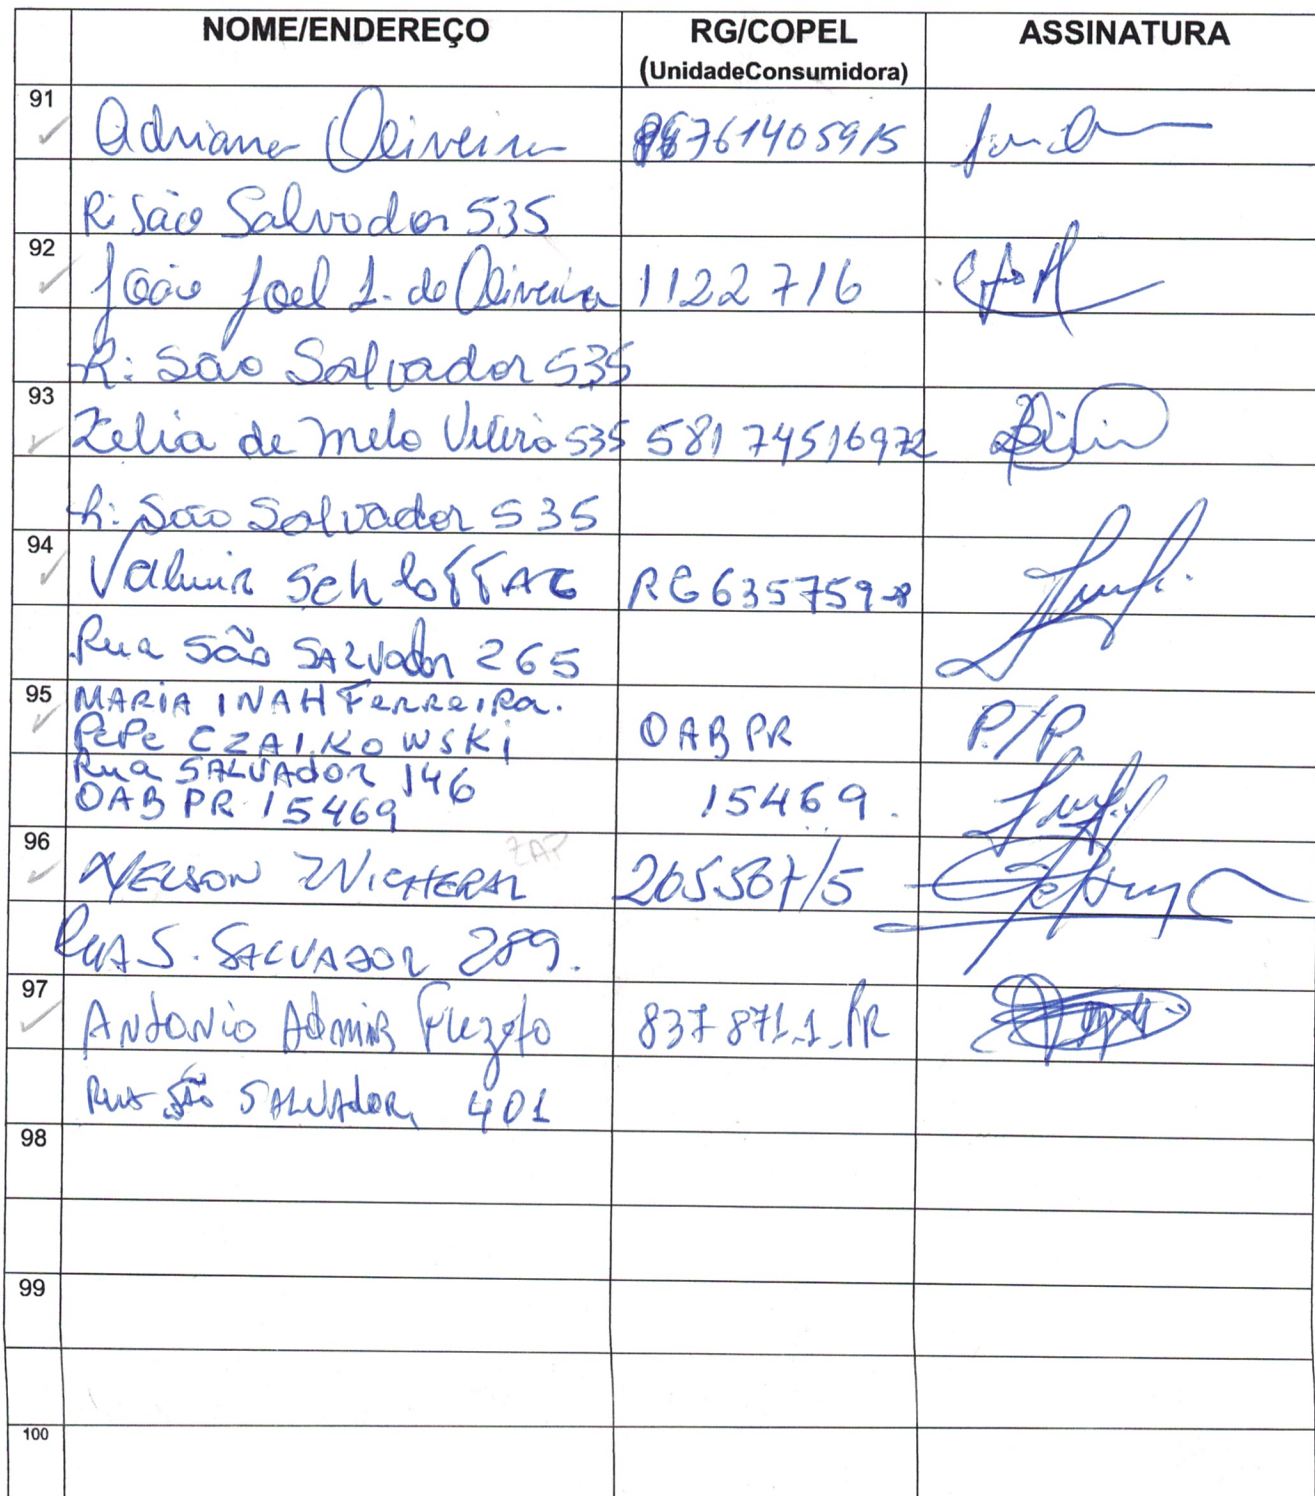 NOME/ENDEREÇO RG/COPEL ASSINATURA
(UnidadeConsumidora)
91 Adriana Oliveira 761405915
R: São Salvador 535
92 João Joel L. de Oliveira 1122716
R: São Salvador 535
93 Zelia de Melo 535 58174516972
R: São Salvador 535
94 Valmir RG 635759-8
Rua São SALVador 265
95 MARIA INAH Ferreira.
PePe CZAIKOWSKi OAB PR P/P.
Rua SALVAdoR 146
OAB PR 15469 15469.
ZAP
96 NELSON 265567/5
RUA S. SALVADOR 289.
97 ANtONio Admir 837871-1-PR
Rua São SALVAdoR, 401
98
99
100